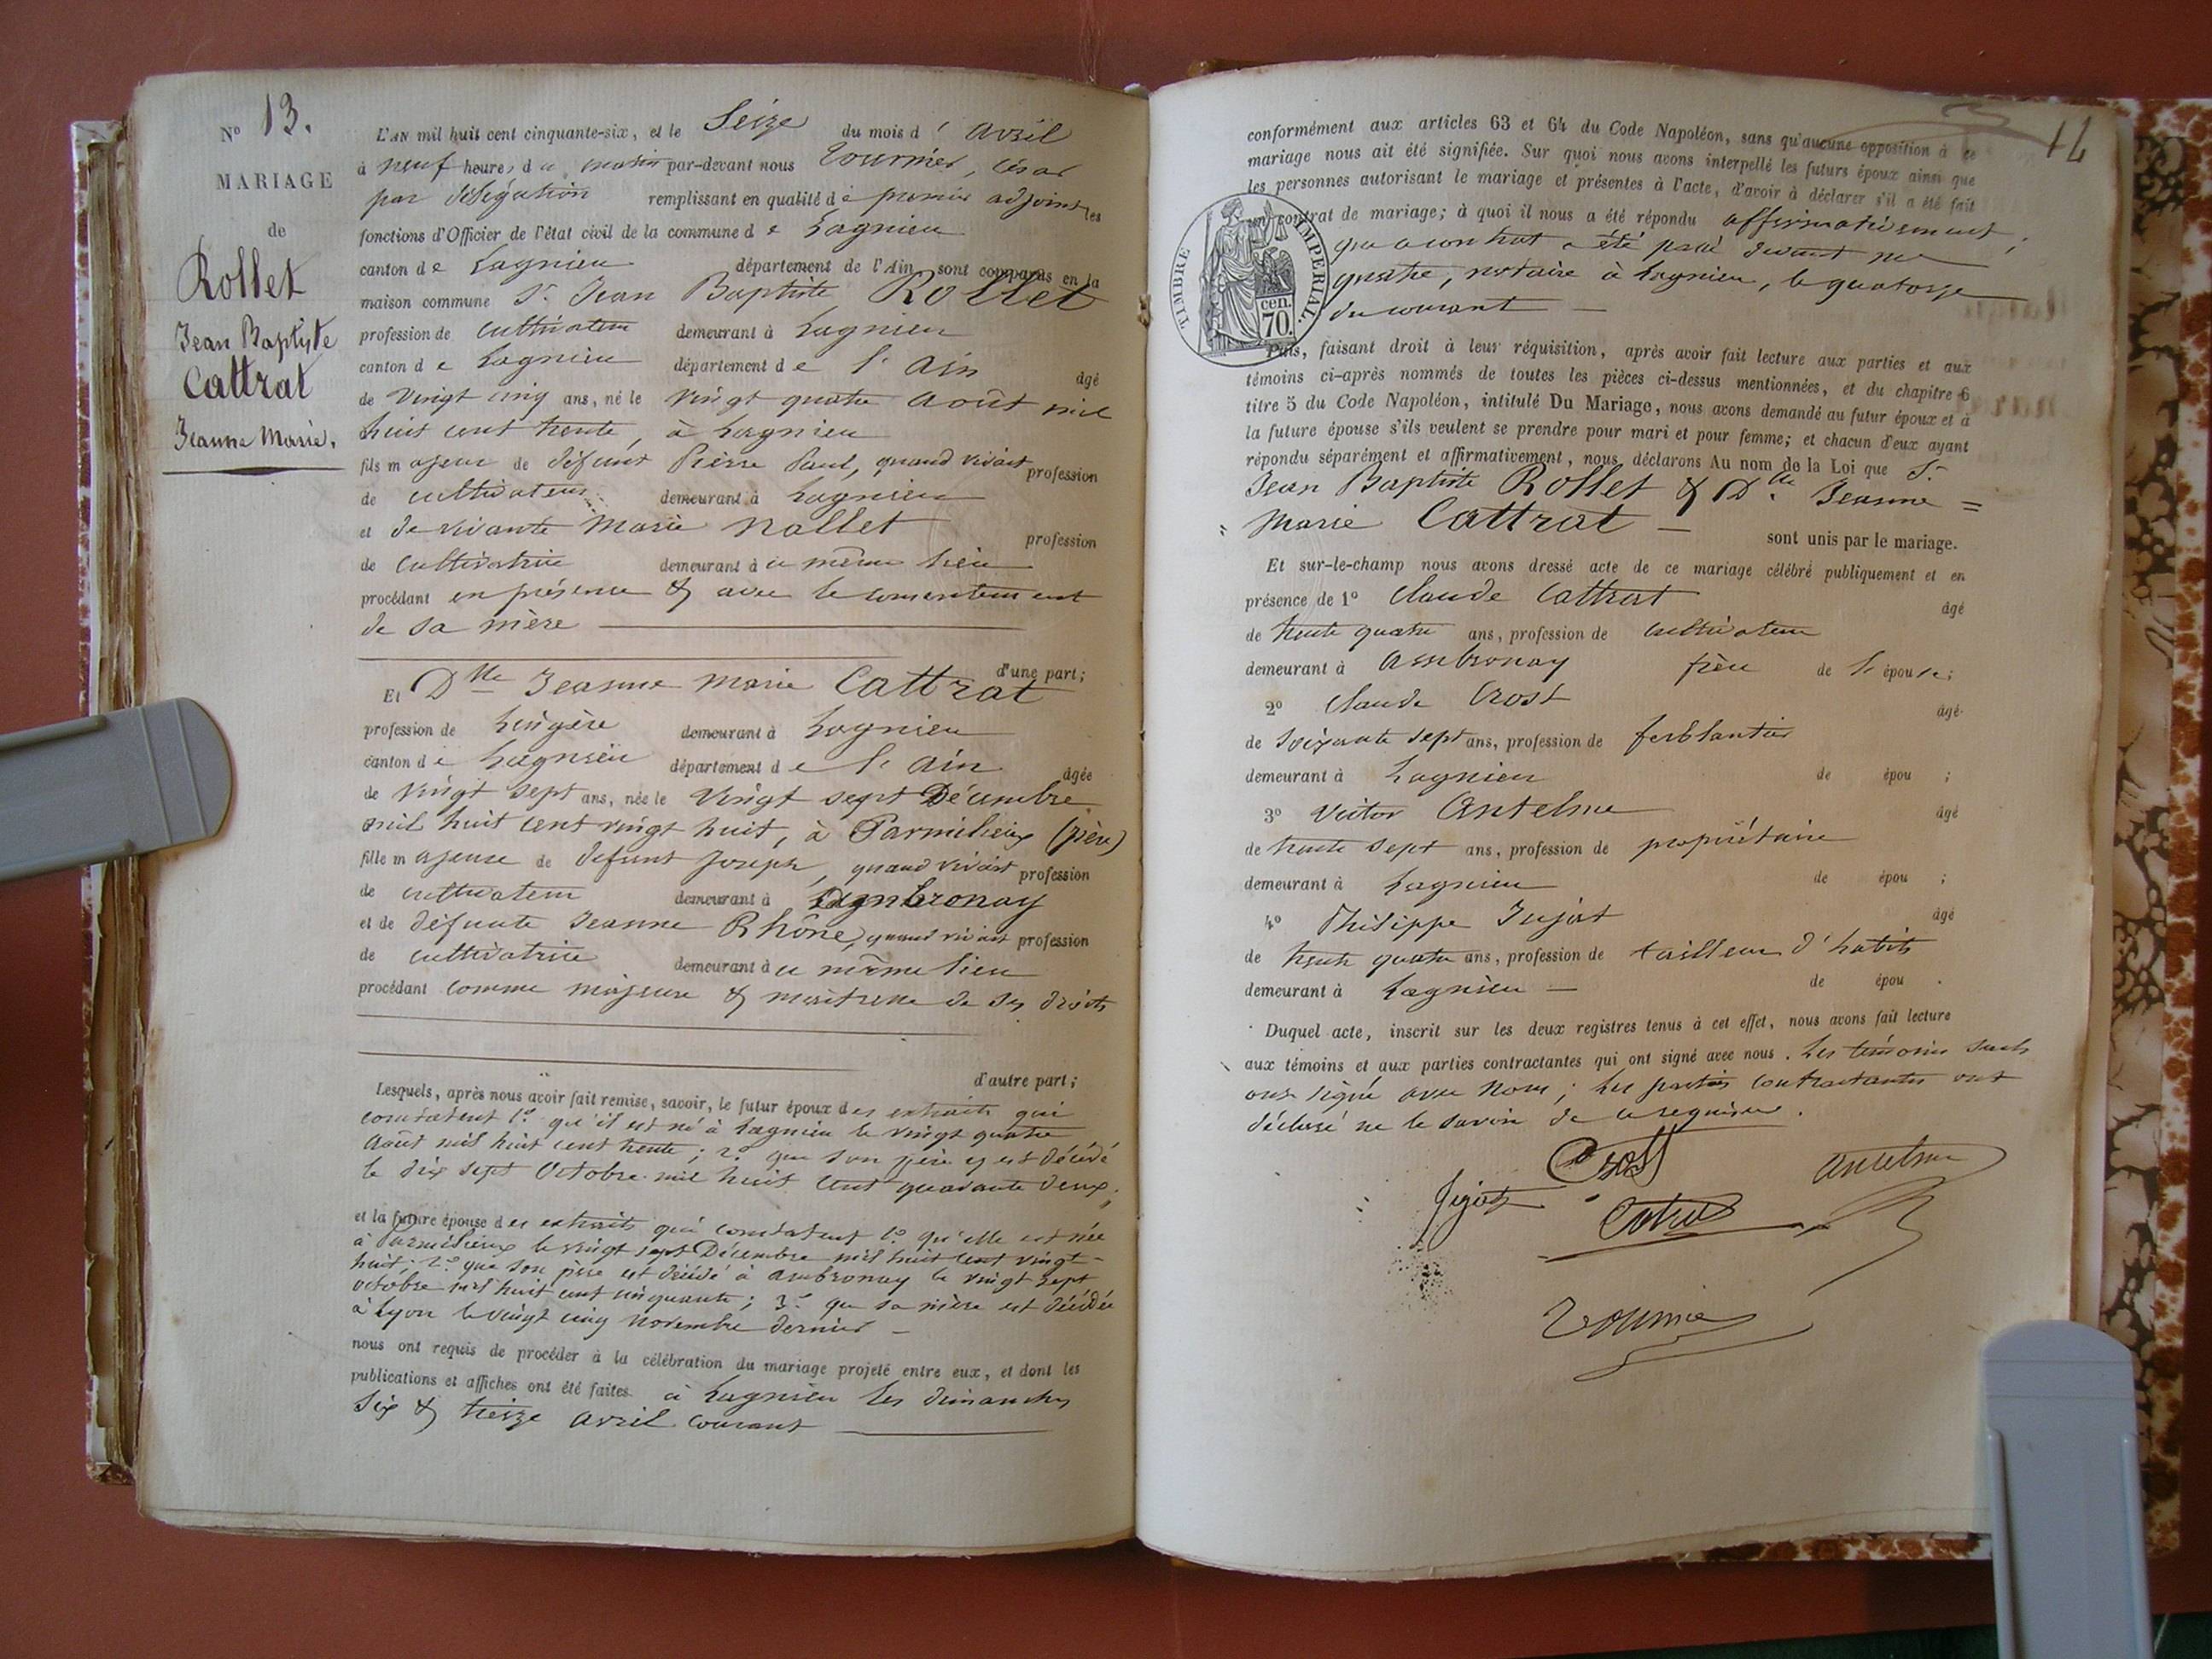 N° 13.
MARIAGE
de
Rollet
Jean Baptiste
Cattrat
Jeanne Marie.
L'AN mil huit cent cinquante-six, et le Seize du mois d' avril
à neuf heures du matin par-devant nous Tournier, César
par délégation remplissant en qualité de premier adjoint les
fonctions d'Officier de l'état civil de la commune de Lagnieu
canton de Lagnieu département de l'Ain sont comparus en la
maison commune Sr. Jean Baptiste Rollet
profession de cultivateur demeurant à Lagnieu
canton de Lagnieu département de l'Ain âgé
de vingt cinq ans, né le vingt quatre Août mil
huit cent trente, à Lagnieu
fils majeur de défunt Pierre Paul, quand vivait profession
de cultivateur demeurant à Lagnieu
et de vivante Marie Nallet profession
de cultivatrice demeurant à ce même lieu
procédant en présence & avec le consentement
de sa mère
d'une part;
Et Dlle Jeanne Marie Cattrat
profession de Lingère demeurant à Lagnieu
canton de Lagnieu département de l'Ain âgée
de vingt sept ans, née le vingt sept Décembre
mil huit cent vingt huit, à Parmilieux (Isère)
fille majeure de défunt Joseph, quand vivait profession
de cultivateur demeurant à Ambronay
et de défunte Jeanne Rhône, quand vivait profession
de cultivatrice demeurant à ce même lieu
procédant comme majeure & maîtresse de ses droits
d'autre part;
Lesquels, après nous avoir fait remise, savoir, le futur époux des extraits qui
constatent 1°. qu'il est né à Lagnieu le vingt quatre
Août mil huit cent trente; 2°. que son père y est décédé
le dix sept Octobre mil huit cent quarante deux;
et la future épouse des extraits qui constatent 1°. qu'elle est née
à Parmilieux le vingt sept Décembre mil huit cent vingt-
huit; 2°. que son père est décédé à Ambronay le vingt sept
octobre mil huit cent cinquante; 3°. que sa mère est décédée
à Lyon le vingt cinq Novembre dernier -
nous ont requis de procéder à la célébration du mariage projeté entre eux, et dont les
publications et affiches ont été faites à Lagnieu les dimanches
six & treize avril courant
14
conformément aux articles 63 et 64 du Code Napoléon, sans qu'aucune opposition à ce
mariage nous ait été signifiée. Sur quoi nous avons interpellé les futurs époux ainsi que
les personnes autorisant le mariage et présentes à l'acte, d'avoir à déclarer s'il a été fait
un contrat de mariage; à quoi il nous a été répondu affirmativement;
que ce contrat a été passé devant me
quatre, notaire à Lagnieu, le quatorze
du courant -
TIMBRE IMPERIAL.
cen.
70.
Puis, faisant droit à leur réquisition, après avoir fait lecture aux parties et aux
témoins ci-après nommés de toutes les pièces ci-dessus mentionnées, et du chapitre 6
titre 5 du Code Napoléon, intitulé Du Mariage, nous avons demandé au futur époux et à
la future épouse s'ils veulent se prendre pour mari et pour femme; et chacun d'eux ayant
répondu séparément et affirmativement, nous déclarons Au nom de la Loi que Sr.
Jean Baptiste Rollet & Dlle Jeanne =
= Marie Cattrat - sont unis par le mariage.
Et sur-le-champ nous avons dressé acte de ce mariage célébré publiquement et en
présence de 1° Claude Cattrat âgé
de trente quatre ans, profession de cultivateur
demeurant à Ambronay frère de l'épouse;
2° Claude Crost âgé
de soixante sept ans, profession de ferblantier
demeurant à Lagnieu de épou ;
3° Victor Antelme âgé
de trente sept ans, profession de propriétaire
demeurant à Lagnieu de épou ;
4° Philippe Jujat âgé
de trente quatre ans, profession de tailleur d'habits
demeurant à Lagnieu - de épou .
Duquel acte, inscrit sur les deux registres tenus à cet effet, nous avons fait lecture
aux témoins et aux parties contractantes qui ont signé avec nous. Les témoins seuls
ont signé avec nous; les parties contractantes ont
déclaré ne le savoir de ce requises.
Crost
Antelme
Jujat
Catrat
Tournier